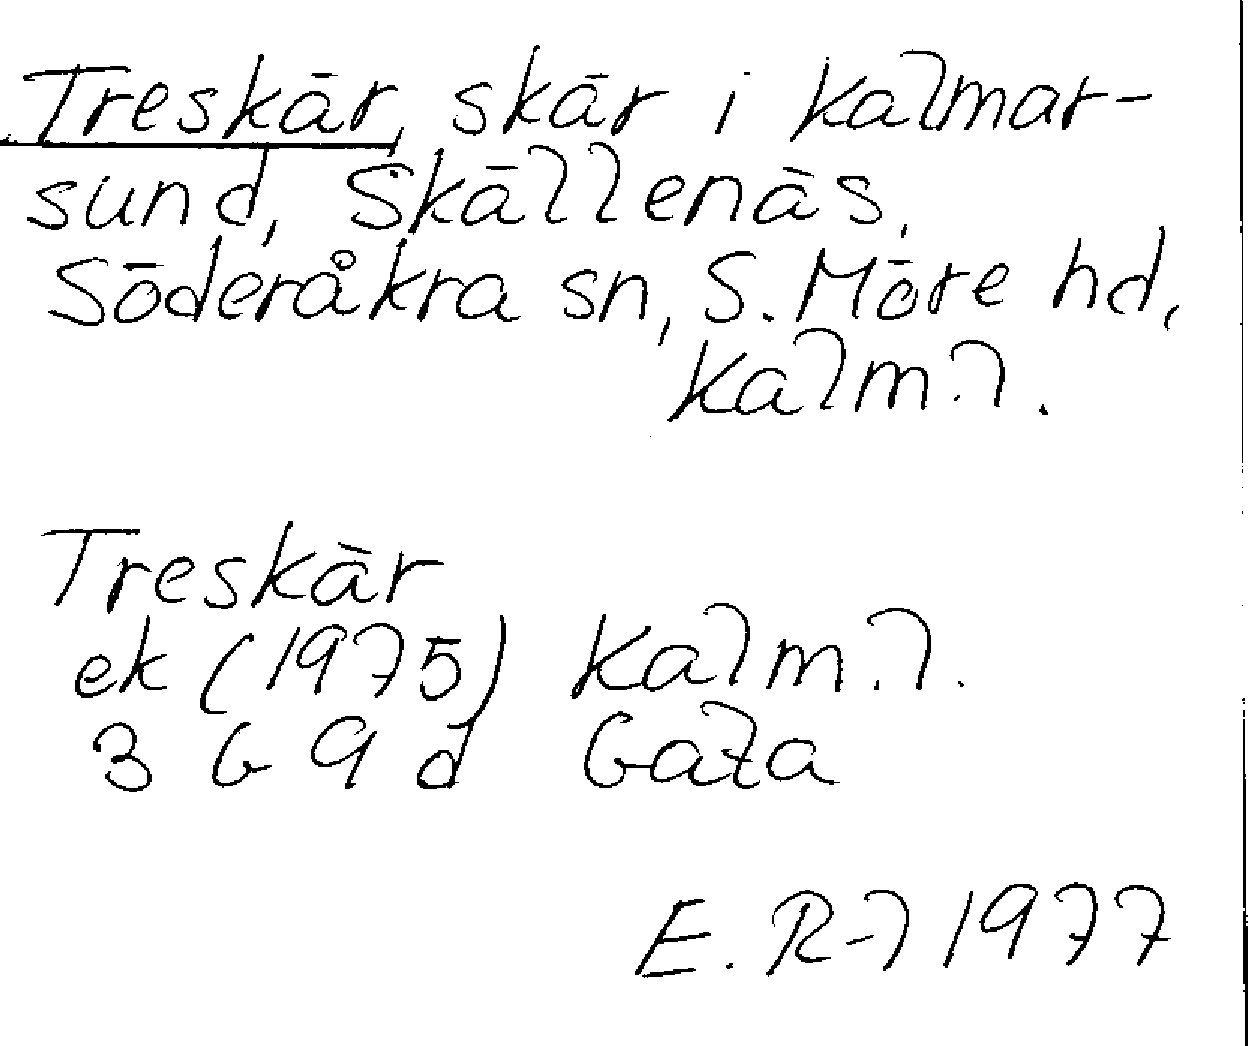 Treskär, skär i Kalmar-
sund, Skällenäs,
Söderåkra sn, S. Möre hd,
Kalm. l.
Treskär
ek (1975) Kalm. l.
3 G 9 d Gata
E. R-l 1977